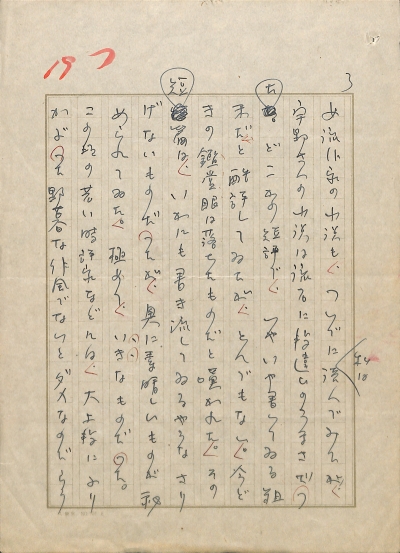 3
197
女流作家の小説も、ついでに読んでみたが、
宇野さんの小説は流石に段違いのうまさだつ
た。どこかの短評で、いやいや書いてゐる粗
末だと酷評してゐたが、とんでもない。今ど
きの鑑賞眼は落ちたものだと嘆かれた。その
短篇は、いかにも書き流してゐるやうな、さり
げないものだつたが、奥に素晴しいものが秘
められてゐた。極めて、いきなものだつた。
この頃の若い時評家などには、大上段にふり
かぶつた野暮な作風でないとダメなのだらう